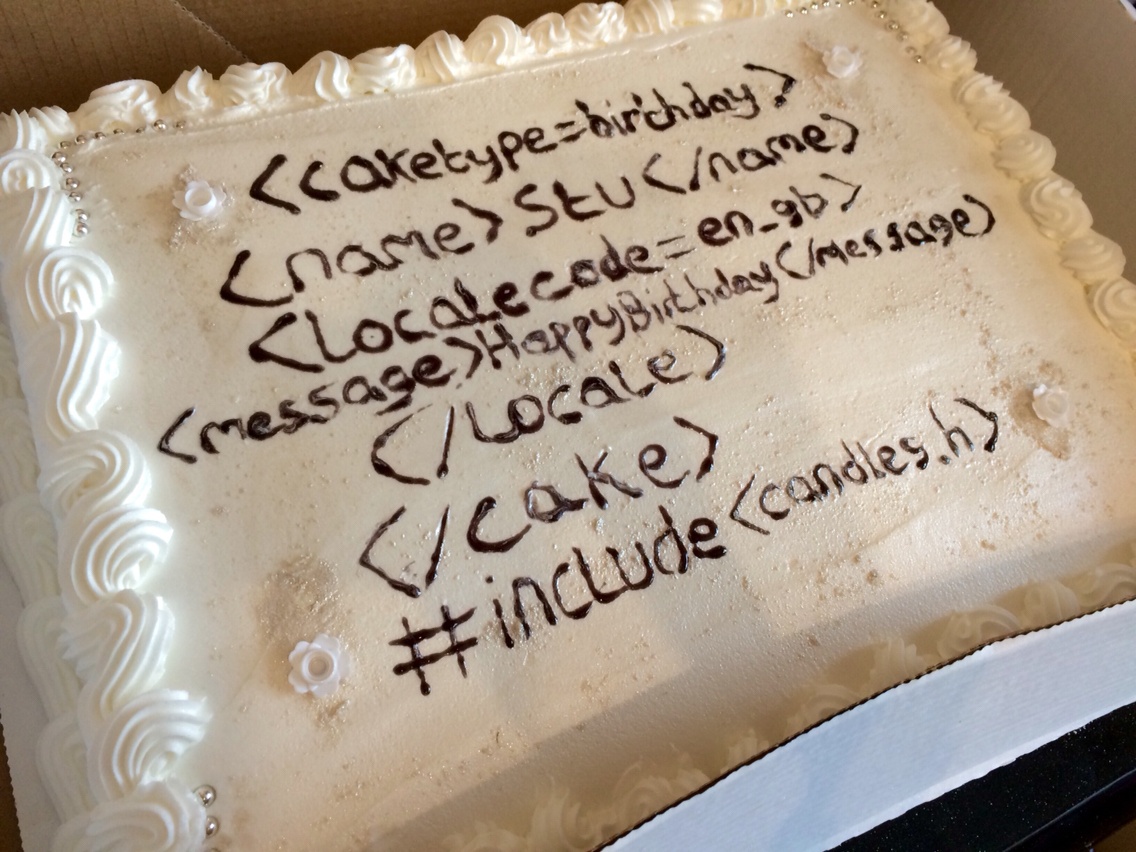 <caketype='birthday'>
<name>Stu</name>
<Localecode=en_gb>
<message>HappyBirthday</message>
</Locale>
</cake>
#include<candles.h>